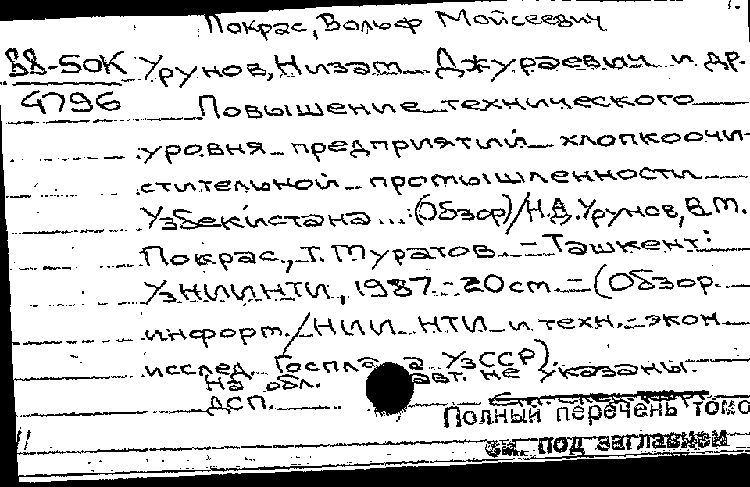 Покрас, Вольф Мойсеевич
88-50К Урунов, Низам Джураевич и др.
4796 Повышение технического
уровня предприятий хлопкоочи-
стительной промышленности
Узбекистана... (Обзор)/Н.Д. Урунов, В.М.
Покрас, Т. Муратов. - Ташкент:
УзНИИНТИ, 1987. - 20 ст. - (Обзор.
информ./НИИ НТИ и техн.-экон.
исслед. Госпла а УзССР).
На обл. авт. не указаны.
ДСП.
Полный перечень томо
см. под заглавием